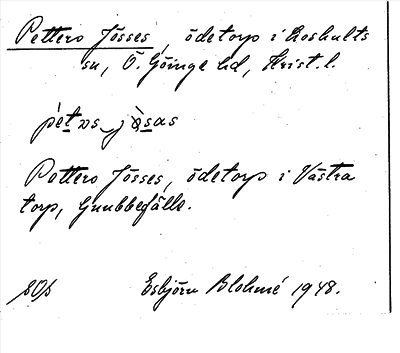 Petters Jösses, ödetorp i Loshults
sn, Ö. Göinge hd, Krist. l.
pétəs jö̀sas
Petters Jösses, ödetorp i Västra
torp, Gnubbefälle.
Esbjörn Blohmé 1948.